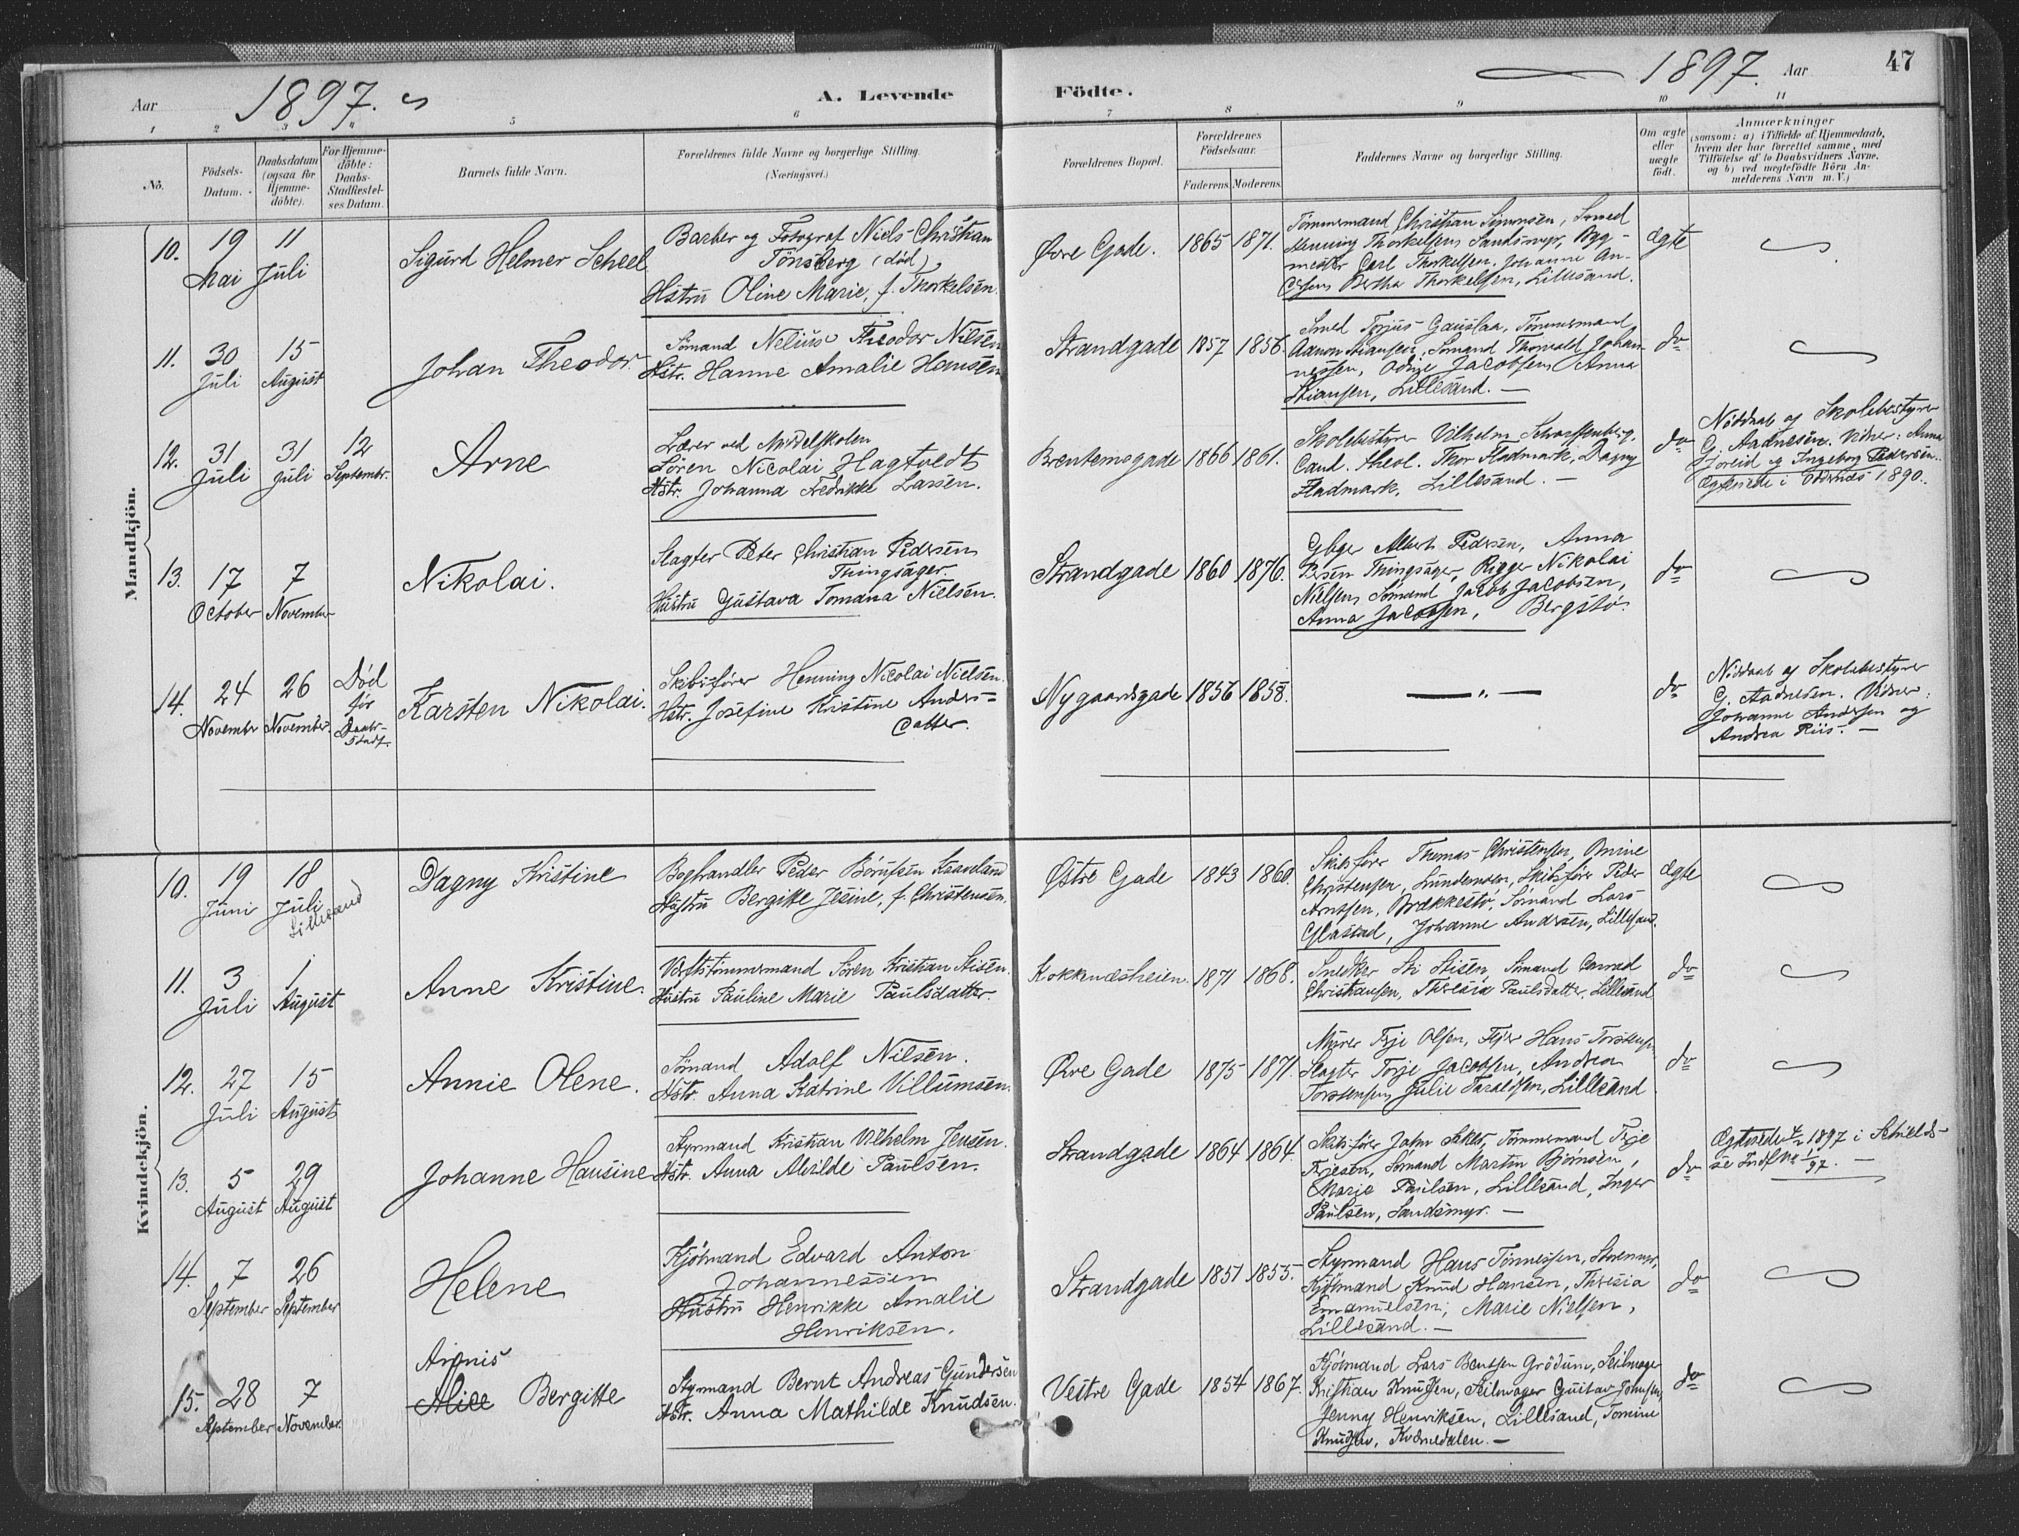 Aar 1897. A. Levende Födte. 1897. Aar 47
1 2 3 4 5 6 7 8 9 10 11
No.
Födsels-Datum.
Daabsdatum (ogsaa for Hjemme-döbte).
For Hjemme-döbte: Daabs-Stadfæstel-ses Datum.
Barnets fulde Navn.
Forældrenes fulde Navne og borgerlige Stilling.
(Næringsvei.)
Forældrenes Bopæl.
Forældrenes Födselsaar.
Faderens. Moderens.
Faddernes Navne og borgerlige Stilling.
Om ægte eller uægte født.
Anmærkninger
(saasom: a) i Tilfælde af Hjemmedaab,
hvem der har forrettet samme, med
Tilföielse af to Daabsvidners Navne,
og b) ved uegtefödte Börn An-
melderens Navn m. V.)
Mandkjön.
10. 19 Mai 11 Juli
Sigurd Helmer Scheel
Barber og Fotograf Niels Christian
Tönsberg (död)
Hstru Oline Marie, f. Thorkelsen.
Øvre Gade. 1865 1871.
Tömmermand Christian Simonsen, Smed
Henning Thorkelsen Sandsmyr, Byg-
mester Carl Thorkelsen, Johanne
Bertha Thorkelsen, Lillesand.
ægte
11. 30 Juli 15 August
Johan Theodor.
Sömand Nelius Theodor Nilsen
Hstr. Hanne Amalie Hansen
Strandgade 1857 1856.
Smed Torjus Gauslaa, Tömmermand
Aanon Stiansen, Sömand Thorvald Johan-
nessen, Jacobsen, Anna
Stiansen, Lillesand. —
do
12. 31 Juli 31 Juli 12 Septembr.
Arne
Lærer ved Middelskolen
Sören Nicolai Hagtvedt
Hstr. Johanna Fredrikke Larsen.
Brentemogade 1866 1861.
Skolebestyrer Vilhelm Scharffenberg,
Cand. theol. Thor Fladmark, Dagny
Fladmark, Lillesand. —
do
Nöddaab af Skolebestyrer
G. Aadnesen. Vidner: Anna
og Ingeborg Pedersen.
Egteviede i Oddernes 1890.
13. 17 October 7 November
Nikolai.
Slagter Peter Christian Pedersen
Thingsager
Hustru Gustava Tomana Nielsen.
Strandgade 1860 1876.
Albert Pedersen, Anna
Thingsager, Rigger Nikolai
Nielsen, Sömand Jacob Jacobsen,
Anna Jacobsen, Bergstö.
do
14. 24 Novembr 26 November. Död för Daabs-Stadf.
Karsten Nikolai.
Skibsförer Henning Nicolai Nielsen.
Hstr. Josefine Kristine Anders=
datter.
Nygaardsgade 1856 1858.
— " —
do
Nöddaab af Skolebestyrer
G. Aadnesen. Vidner:
Johanne Andersen og
Andrea Riis. —
Kvindekjön.
10. 19 Juni 18 Juli Lillesand
Dagny Kristine
Boghandler Peder Börufsen Kaaveland
Hustru Bergitte Jesine, f. Christensen.
Østre Gade 1843 1860.
Skibsförer Thomas Christensen, Omine
Christensen, Lundemoen, Skibsförer Peder
Arntsen, Brækkestö, Sömand Lars
Glastad, Johanne Andersen, Lillesand.
ægte
11. 3 Juli 1 August
Anne Kristine.
Verftstömmermand Sören Kristian Stisen.
Hustru Pauline Marie Paulsdatter.
Kokkenæsheien. 1871 1868.
Snedker Sti Stisen, Sömand Conrad
Christiansen, Theresia Paulsdatter, Lillesand
do
12. 27 Juli 15 August
Annie Olene.
Sömand Adolf Nilsen.
Hstr. Anna Katrine Villumsen.
Øvre Gade 1875 1871.
Murer Terje Olsen, Hans Torstensen,
Slagter Torje Jacobsen, Andrea
Torstensen, Julie Taraldsen, Lillesand
do
13. 5 August 29 August
Johanne Hansine
Styrmand Kristian Vilhelm Jensen.
Hstr. Anna Alvilde Paulsen.
Strandgade 1864 1864.
Skibsförer John Aker, Tömmermand Terje
Terjesen, Sömand Martin Björnsen,
Marie Paulsen, Lillesand, Inger
Paulsen, Sandsmyr. —
do
1897 i Schields-
se Indf. No 1/97. —
14. 7 September 26 September
Helene
Kjöbmand Edvard Anton
Johannessen
Hustru Henrikke Amalie
Henriksen.
Strandgade 1851 1855.
Styrmand Hans Tönnessen, Storemyr,
Kjöbmand Knud Hansen, Theresia
Emanuelsen, Marie Nielsen,
Lillesand. —
do
15. 28 September 7 November.
Agnis
Alice Bergitte
Styrmand Bernt Andreas Gundersen
Hstr. Anna Mathilde Knudsen.
Vestre Gade 1854 1867.
Kjöbmand Lars Bentsen Grödum, Seilmager
Kristian Knudsen, Seilmager Gustav Johnsen,
Jenny Henriksen, Lillesand, Tomine
Knudsen, Kvernedalen. —
do